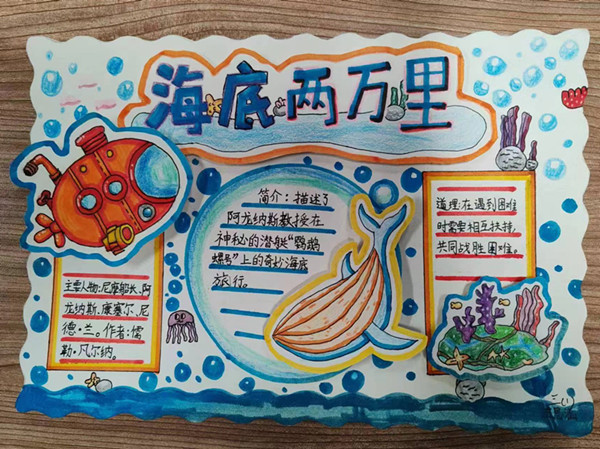 海底两万里
简介:描述了
阿龙纳斯教授在
神秘的潜艇“鹦鹉
螺号”上的奇妙海底
旅行。
道理:在遇到困难
时需要相互扶持,
共同战胜困难。
主要人物:尼摩船长、阿
龙纳斯、康塞尔、尼
德·兰。作者:儒
勒·凡尔纳。